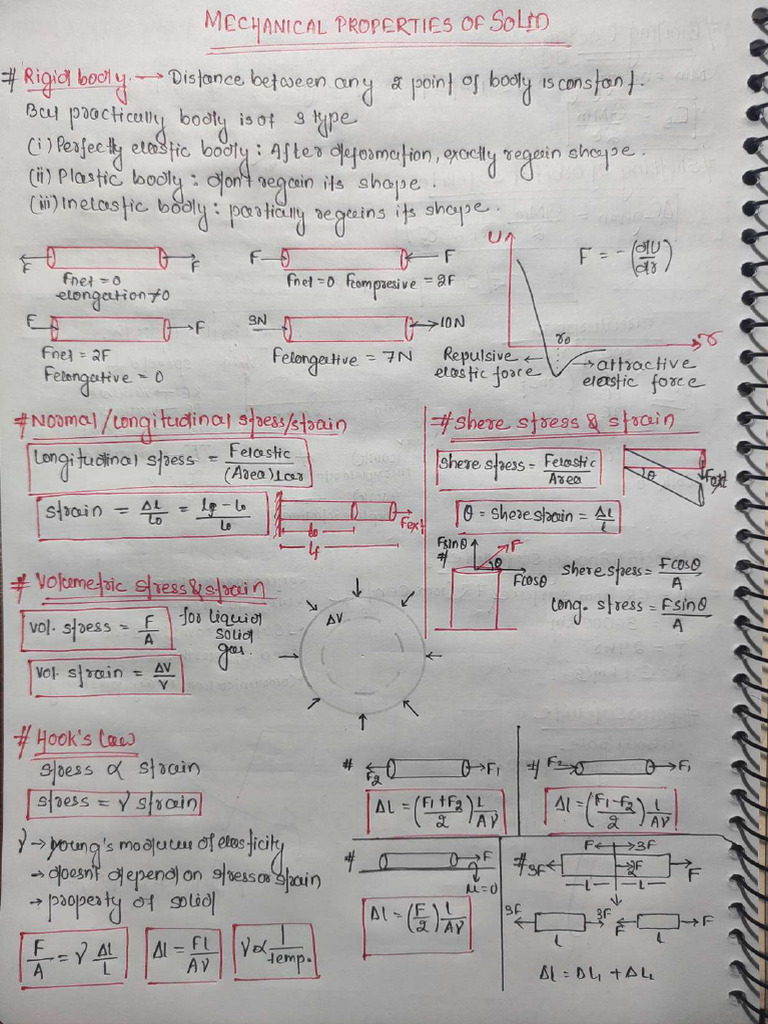 MECHANICAL PROPERTIES OF SOLID
# Rigid body → Distance between any 2 point of body is constant.
But practically body is of 3 type
(i) Perfectly elastic body : After deformation, exactly regain shape.
(ii) Plastic body : don't regain its shape.
(iii) Inelastic body : partially regains its shape.
F F
Fnet = 0
elongation ≠ 0
F F
Fnet = 0 Fcompresive = 2F
U
F = -(dU/dr)
r0 r
Repulsive ← elastic force
→ attractive elastic force
F F
Fnet = 2F
Felongative = 0
3N 10N
Felongative = 7N
# Normal / Longitudinal stress/strain
Longitudinal stress = Felastic/(Area)⊥car
strain = ΔL/l0 = (lf - l0)/l0
l0 Fext
lf
# Shere stress & strain
Shere stress = Felastic/Area
θ Fext
θ = shere strain = Δl/L
# Fsinθ F
θ Fcosθ
shere stress = Fcosθ/A
long. stress = Fsinθ/A
# Volumetric stress & strain
vol. stress = F/A
for liquid
solid
gas.
vol. strain = ΔV/V
ΔV
# Hook's Law
stress ∝ strain
stress = Y strain
Y → young's modulus of elasticity
→ doesn't depend on stress or strain
→ property of solid
F/A = Y Δl/L
Δl = FL/AY
Y ∝ 1/temp.
# F2 F1
ΔL = ((F1+F2)/2) L/AY
# F2 F1
Δl = ((F1-F2)/2) L/AY
# F
μ=0
Δl = (F/2) L/AY
# F 3F
3F 2F F
L L
3F 3F F F
L L
Δl = ΔL1 + ΔL2